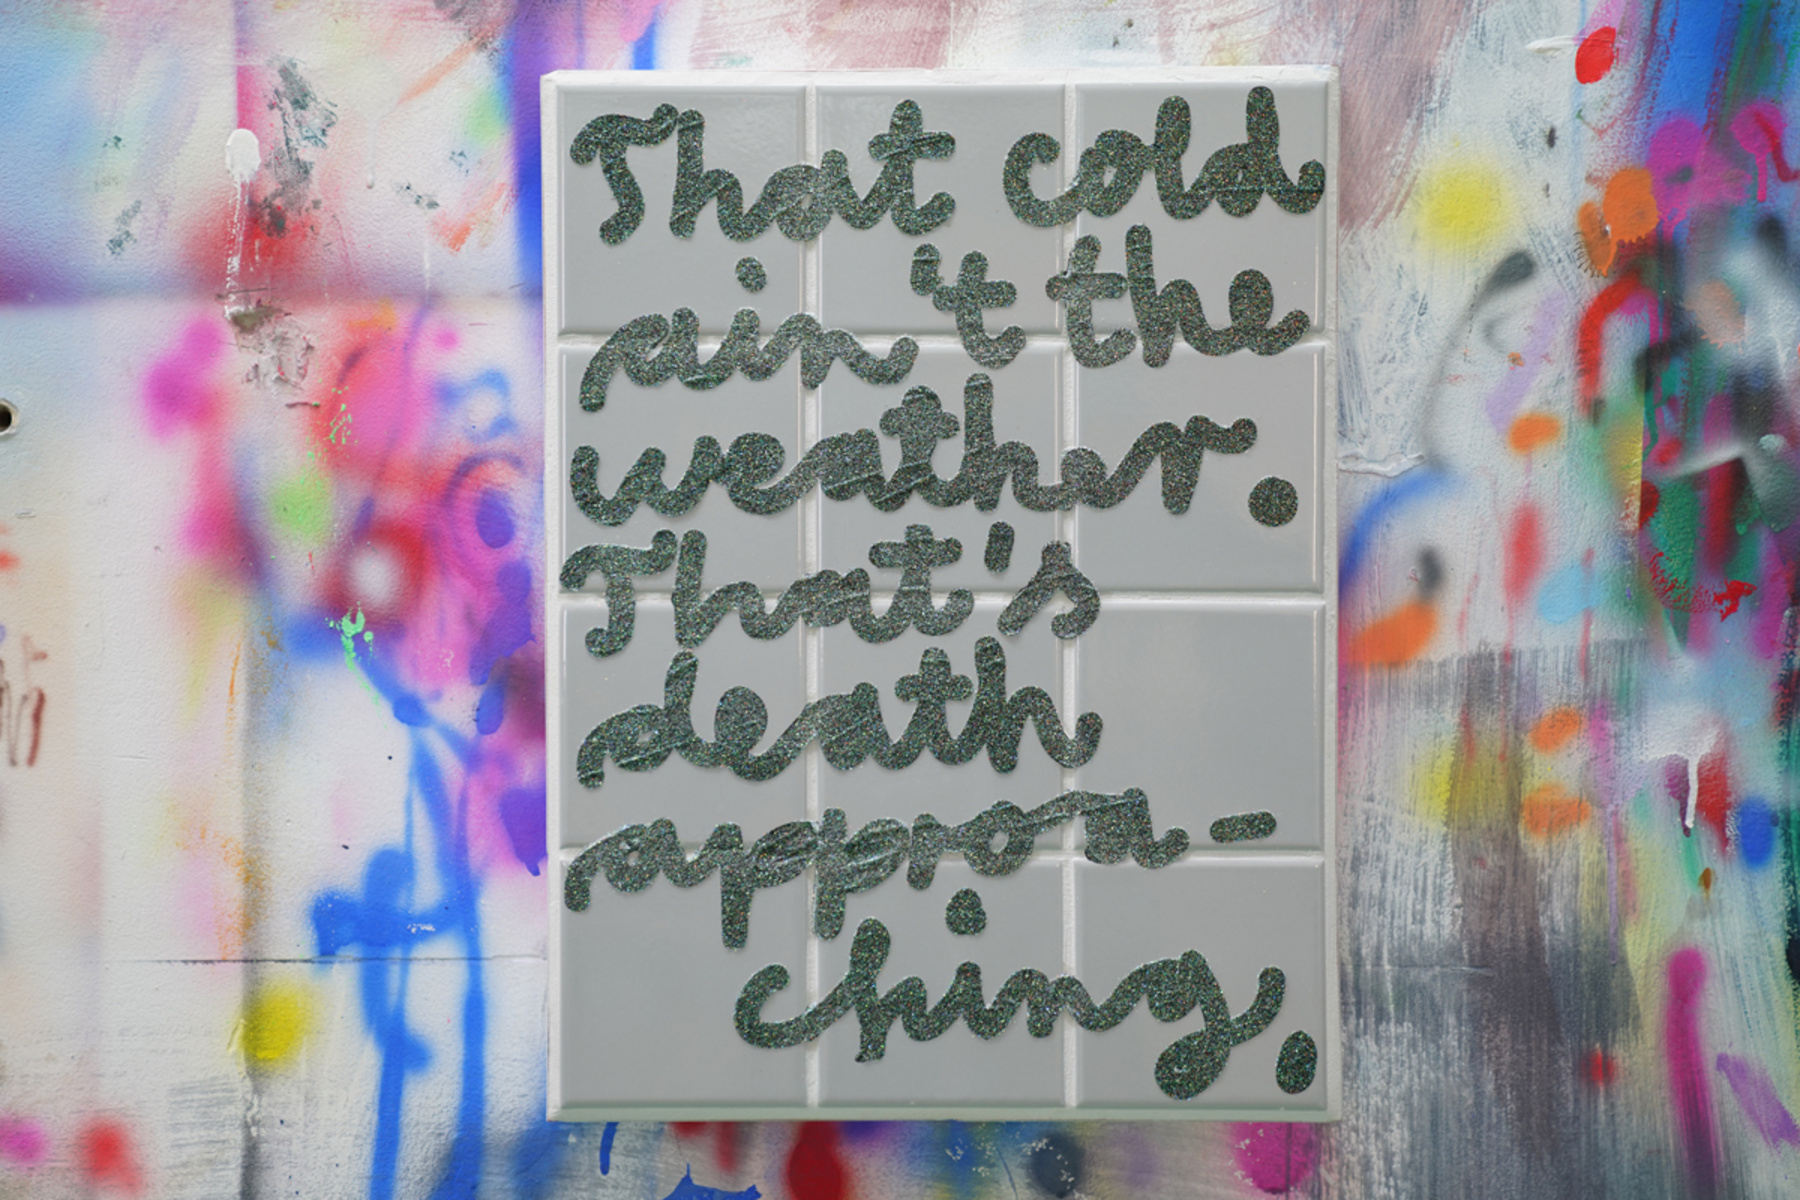 That cold
ain't the
weather.
That's
death
approa-
ching.